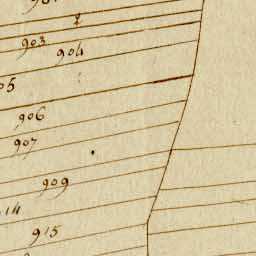 2
903
904
05
906
907
909
14
915